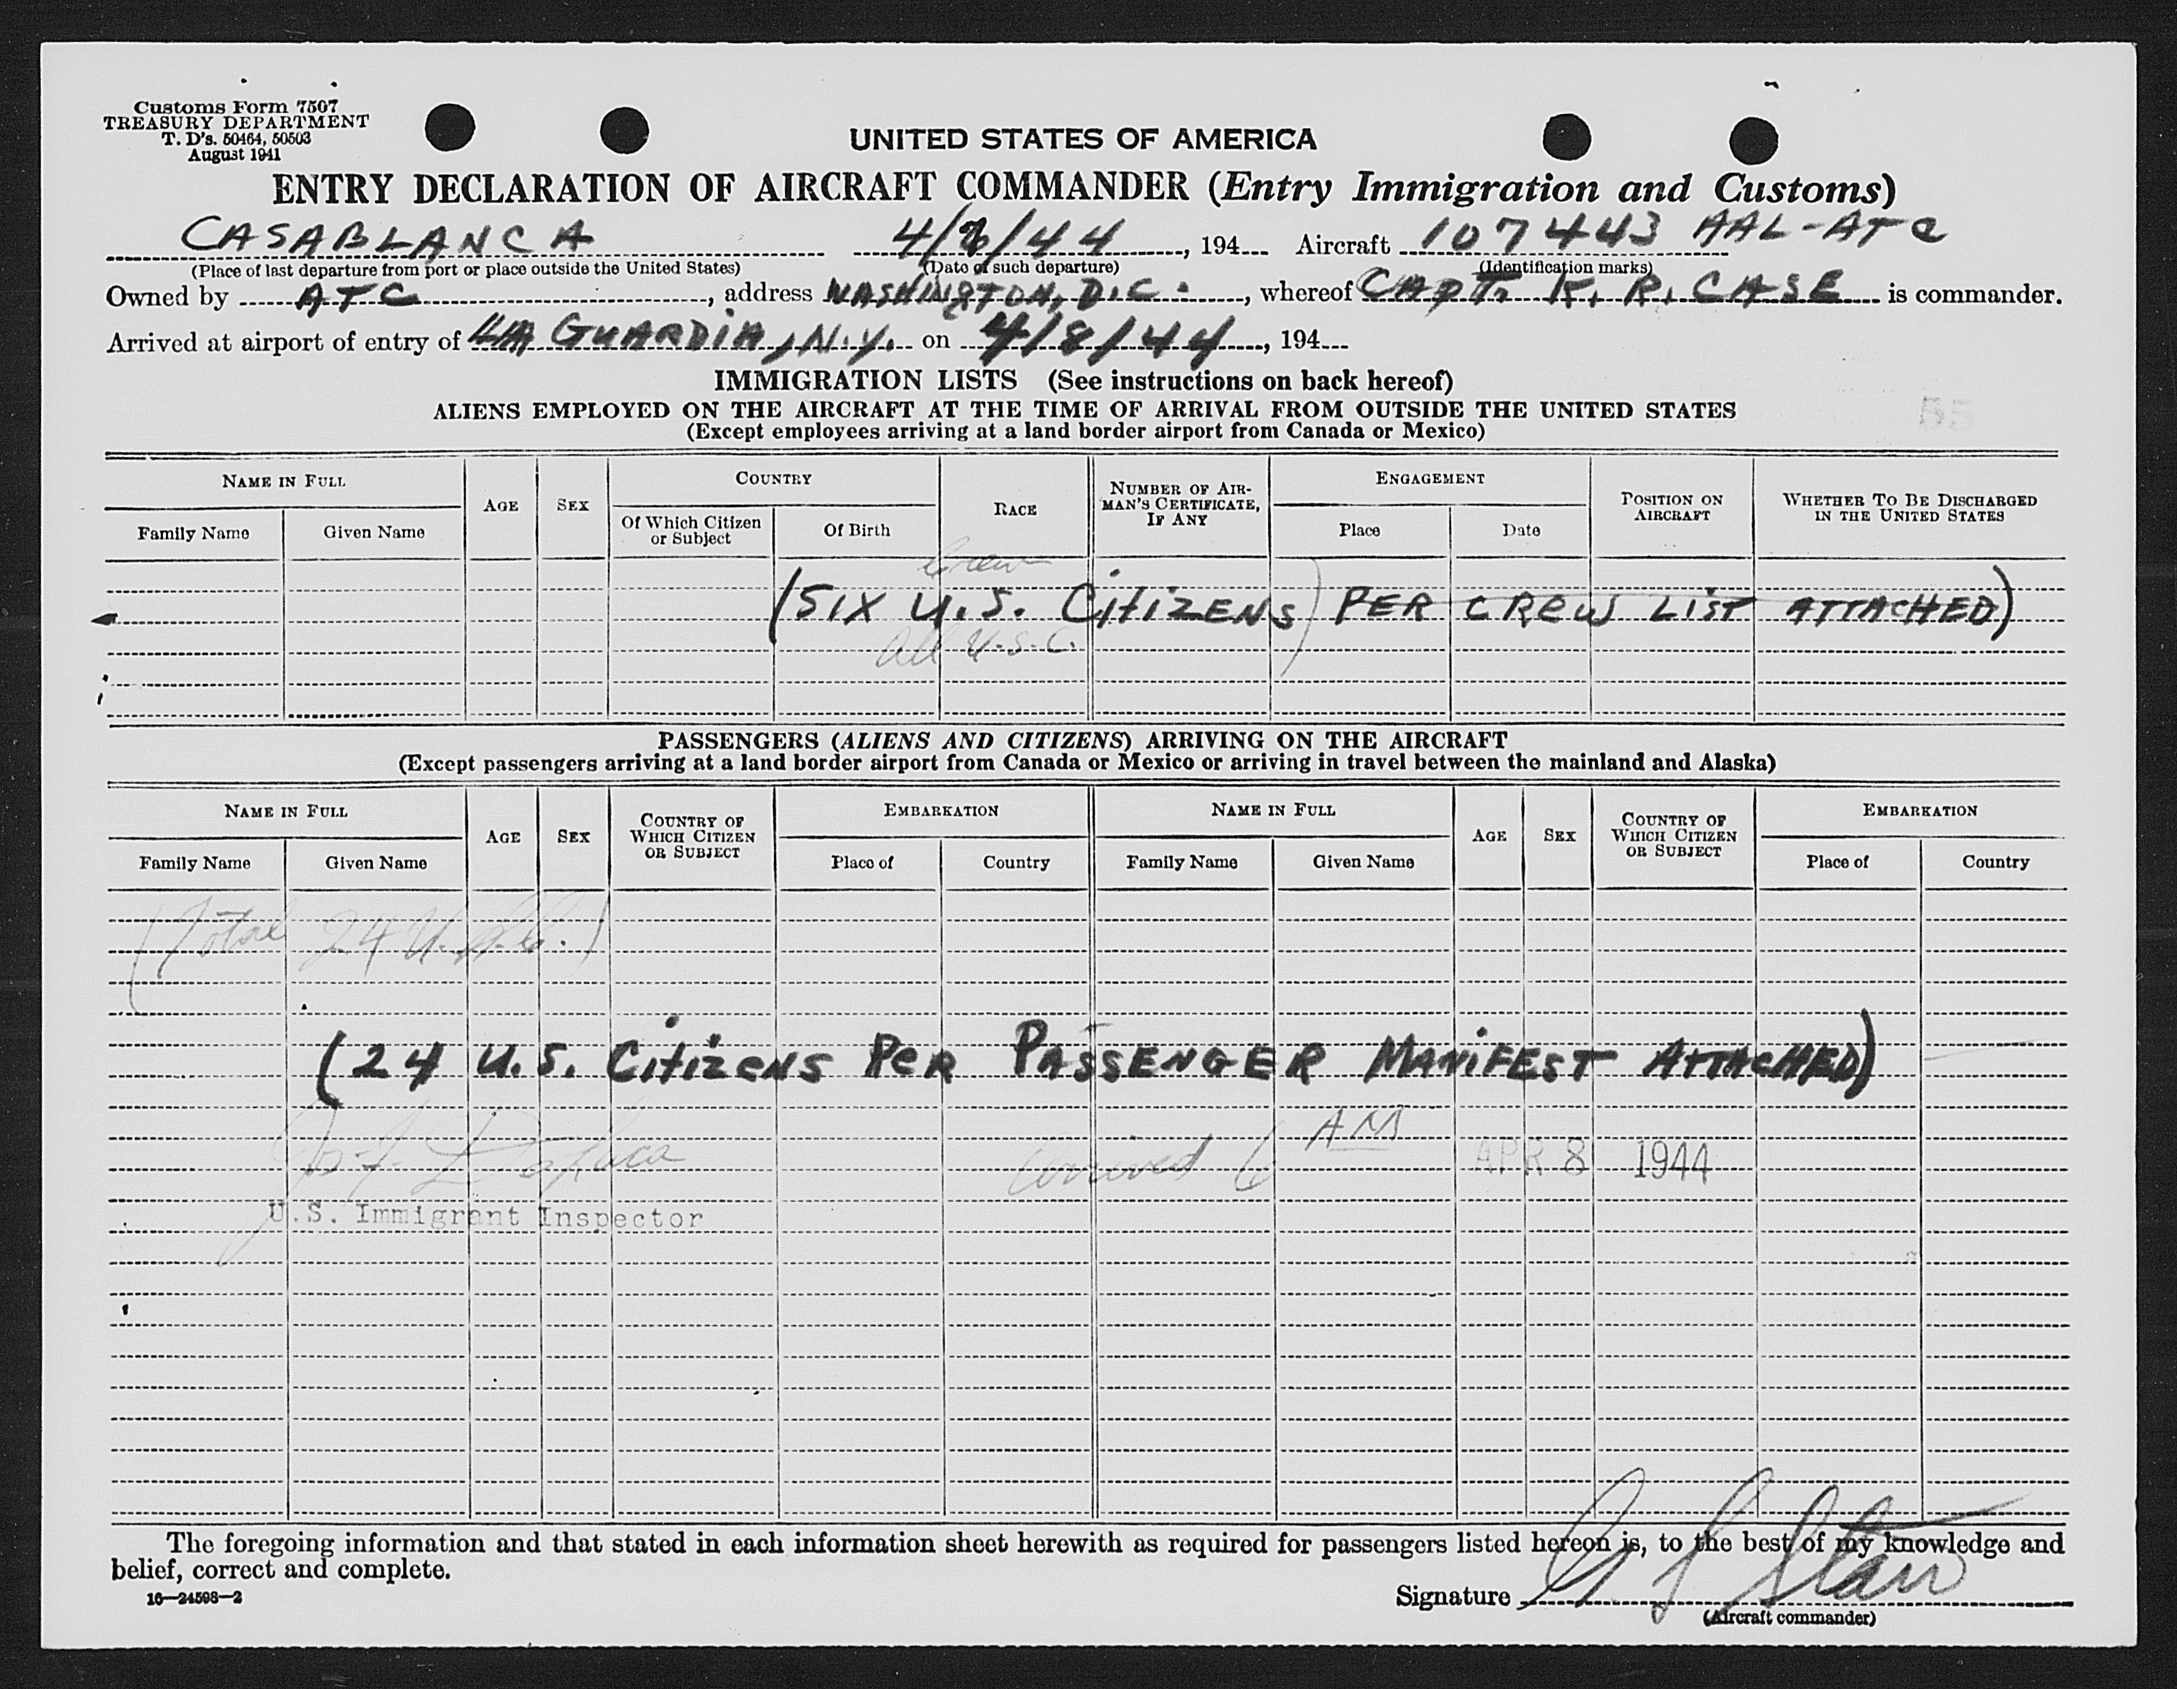 Customs Form 7507
TREASURY DEPARTMENT
T. D's. 50464, 50503
August 1941
UNITED STATES OF AMERICA
ENTRY DECLARATION OF AIRCRAFT COMMANDER (Entry Immigration and Customs)
CASABLANCA 4/ /44, 194 Aircraft 107443 AAL-ATC
(Place of last departure from port or place outside the United States) (Date of such departure) (Identification marks)
Owned by ATC, address WASHINGTON, D.C., whereof CAPT. K. R. CASE is commander.
Arrived at airport of entry of LA GUARDIA, N.Y. on 4/8/44, 194
IMMIGRATION LISTS (See instructions on back hereof)
ALIENS EMPLOYED ON THE AIRCRAFT AT THE TIME OF ARRIVAL FROM OUTSIDE THE UNITED STATES
55
(Except employees arriving at a land border airport from Canada or Mexico)
NAME IN FULL AGE SEX COUNTRY RACE NUMBER OF AIRMAN'S CERTIFICATE, IF ANY ENGAGEMENT POSITION ON AIRCRAFT WHETHER TO BE DISCHARGED IN THE UNITED STATES
Family Name Given Name Of Which Citizen or Subject Of Birth Place Date
Crew
(SIX U.S. CITIZENS) PER CREW LIST ATTACHED)
All U.S.C.
PASSENGERS (ALIENS AND CITIZENS) ARRIVING ON THE AIRCRAFT
(Except passengers arriving at a land border airport from Canada or Mexico or arriving in travel between the mainland and Alaska)
NAME IN FULL AGE SEX COUNTRY OF WHICH CITIZEN OR SUBJECT EMBARKATION NAME IN FULL AGE SEX COUNTRY OF WHICH CITIZEN OR SUBJECT EMBARKATION
Family Name Given Name Place of Country Family Name Given Name Place of Country
(Total 24 U.S.C.)
(24 U.S. CITIZENS PER PASSENGER MANIFEST ATTACHED)
Arrived 6 AM APR 8 1944
U.S. Immigrant Inspector
The foregoing information and that stated in each information sheet herewith as required for passengers listed hereon is, to the best of my knowledge and
belief, correct and complete.
16—24598—2
Signature
(Aircraft commander)